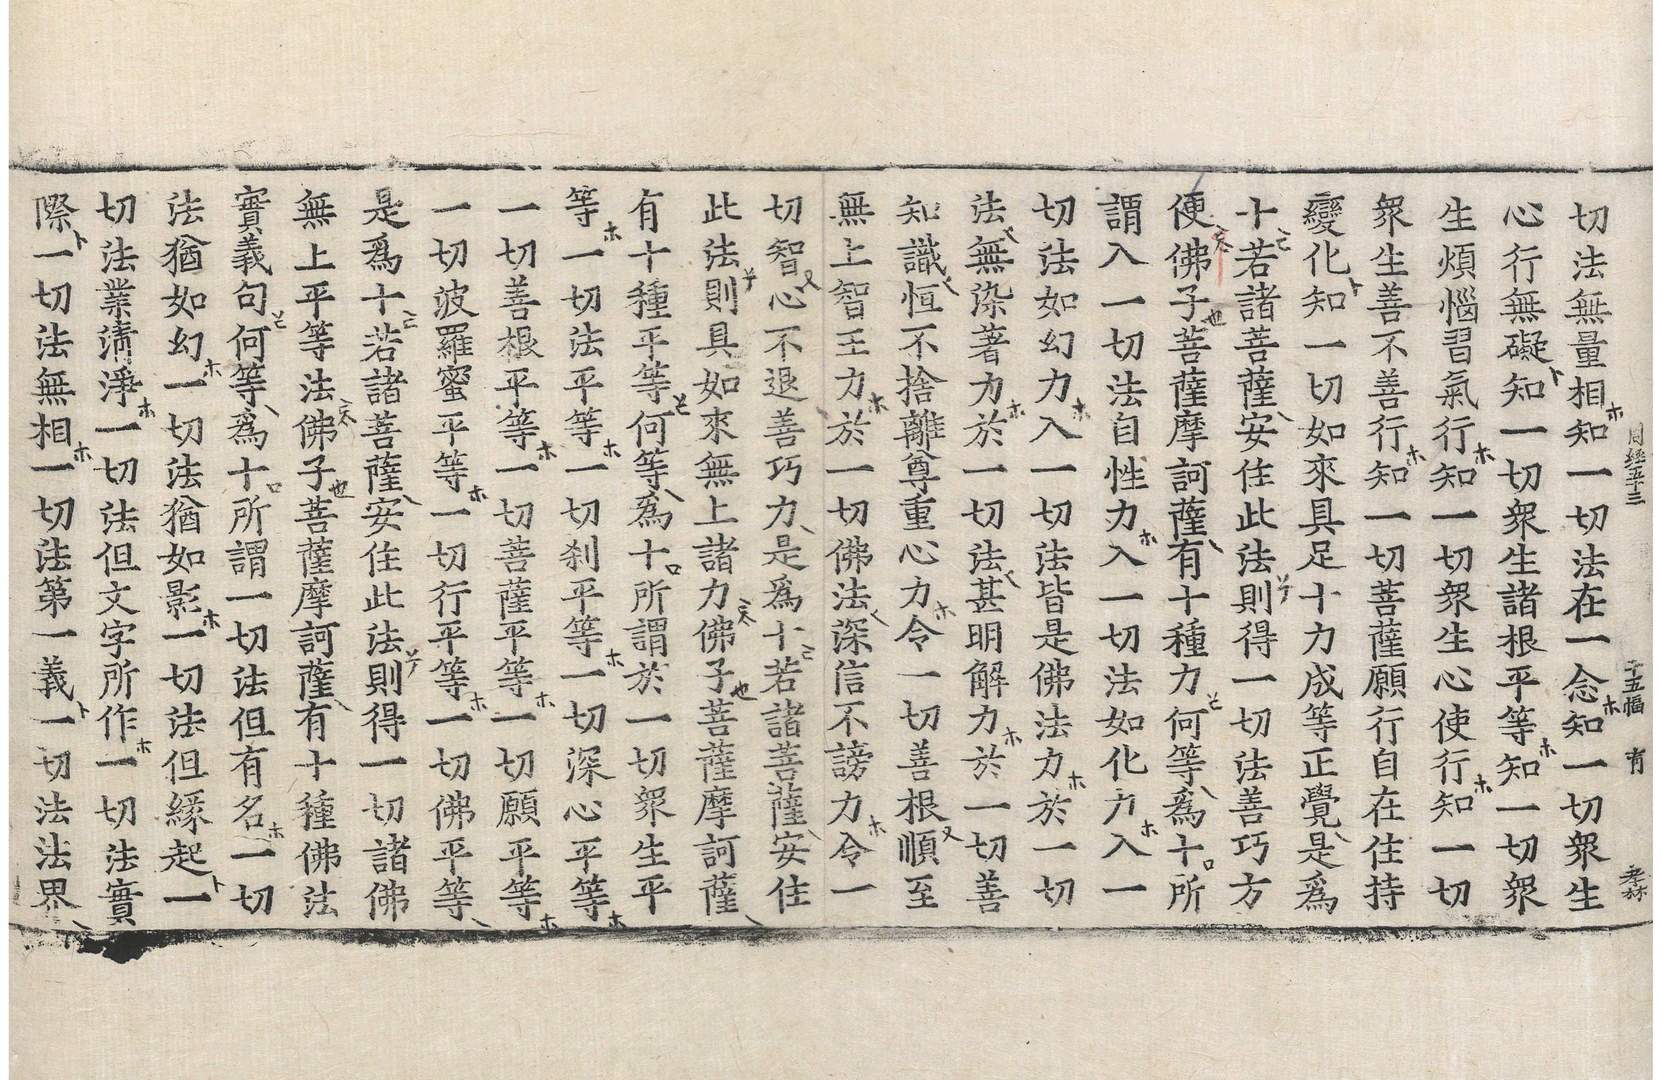 周經五十三 十五幅 有 孝林
切法無量相知一切法在一念知一切衆生
心行無礙知一切衆生諸根平等知一切衆
生煩惱習氣行知一切衆生心使行知一切
衆生善不善行知一切菩薩願行自在住持
變化知一切如來具足十力成等正覺是爲
十若諸菩薩安住此法則得一切法善巧方
便佛子菩薩摩訶薩有十種力何等爲十所
謂入一切法自性力入一切法如化力入一
切法如幻力入一切法皆是佛法力於一切
法無染著力於一切法甚明解力於一切善
知識恒不捨離尊重心力令一切善根順至
無上智王力於一切佛法深信不謗力令一
切智心不退善巧力是爲十若諸菩薩安住
此法則具如來無上諸力佛子菩薩摩訶薩
有十種平等何等爲十所謂於一切衆生平
等一切法平等一切刹平等一切深心平等
一切善根平等一切菩薩平等一切願平等
一切波羅蜜平等一切行平等一切佛平等
是爲十若諸菩薩安住此法則得一切諸佛
無上平等法佛子菩薩摩訶薩有十種佛法
實義句何等爲十所謂一切法但有名一切
法猶如幻一切法猶如影一切法但緣起一
切法業淸淨一切法但文字所作一切法實
際一切法無相一切法第一義一切法法界